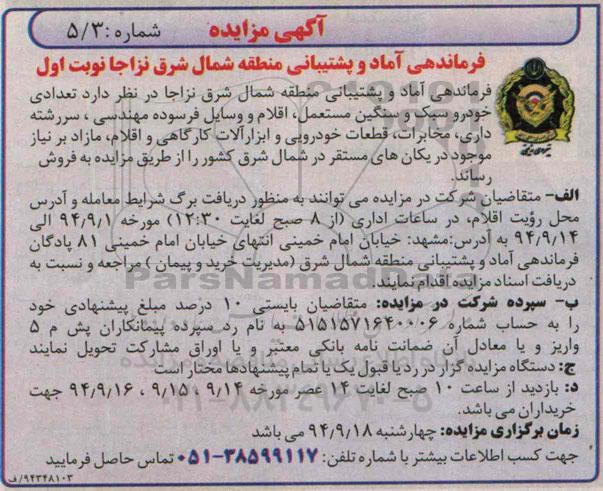 آگهی مزایده
شماره: ۵/۳
فرماندهی آماد و پشتیبانی منطقه شمال شرق نزاجا نوبت اول
فرماندهی آماد و پشتیبانی منطقه شمال شرق نزاجا در نظر دارد تعدادی
خودرو سبک و سنگین مستعمل، اقلام و وسایل فرسوده مهندسی، سررشته
داری، مخابرات، قطعات خودرویی و ابزارآلات کارگاهی و اقلام، مازاد بر نیاز
موجود در یکان های مستقر در شمال شرق کشور را از طریق مزایده به فروش
رساند.
الف- متقاضیان شرکت در مزایده می توانند به منظور دریافت برگ شرایط معامله و آدرس
محل رؤیت اقلام، در ساعات اداری (از ۸ صبح لغایت ۱۲:۳۰) مورخه ۹۴/۹/۱ الی
۹۴/۹/۱۴ به آدرس:مشهد: خیابان امام خمینی انتهای خیابان امام خمینی ۸۱ پادگان
فرماندهی آماد و پشتیبانی منطقه شمال شرق (مدیریت خرید و پیمان) مراجعه و نسبت به
دریافت اسناد مزایده اقدام نمایند.
ب- سپرده شرکت در مزایده: متقاضیان بایستی ۱۰ درصد مبلغ پیشنهادی خود
را به حساب شماره ۵۱۵۱۵۷۱۶۴۰۰۰۶ به نام رد سپرده پیمانکاران پش م ۵
واریز و یا معادل آن ضمانت نامه بانکی معتبر و یا اوراق مشارکت تحویل نمایند
ج: دستگاه مزایده گزار در رد یا قبول یک یا تمام پیشنهادها مختار است
د: بازدید از ساعت ۱۰ صبح لغایت ۱۴ عصر مورخه ۹/۱۴ ، ۹/۱۵ ، ۹۴/۹/۱۶ جهت
خریداران می باشد.
زمان برگزاری مزایده: چهارشنبه ۹۴/۹/۱۸ می باشد
جهت کسب اطلاعات بیشتر با شماره تلفن: ۳۸۵۹۹۱۱۷-۰۵۱ تماس حاصل فرمایید
۹۴۳۴۸۱۰۳/ف
ParsNamadData
۰۲۱-۸۸۳۴۹۶۷۰-۵